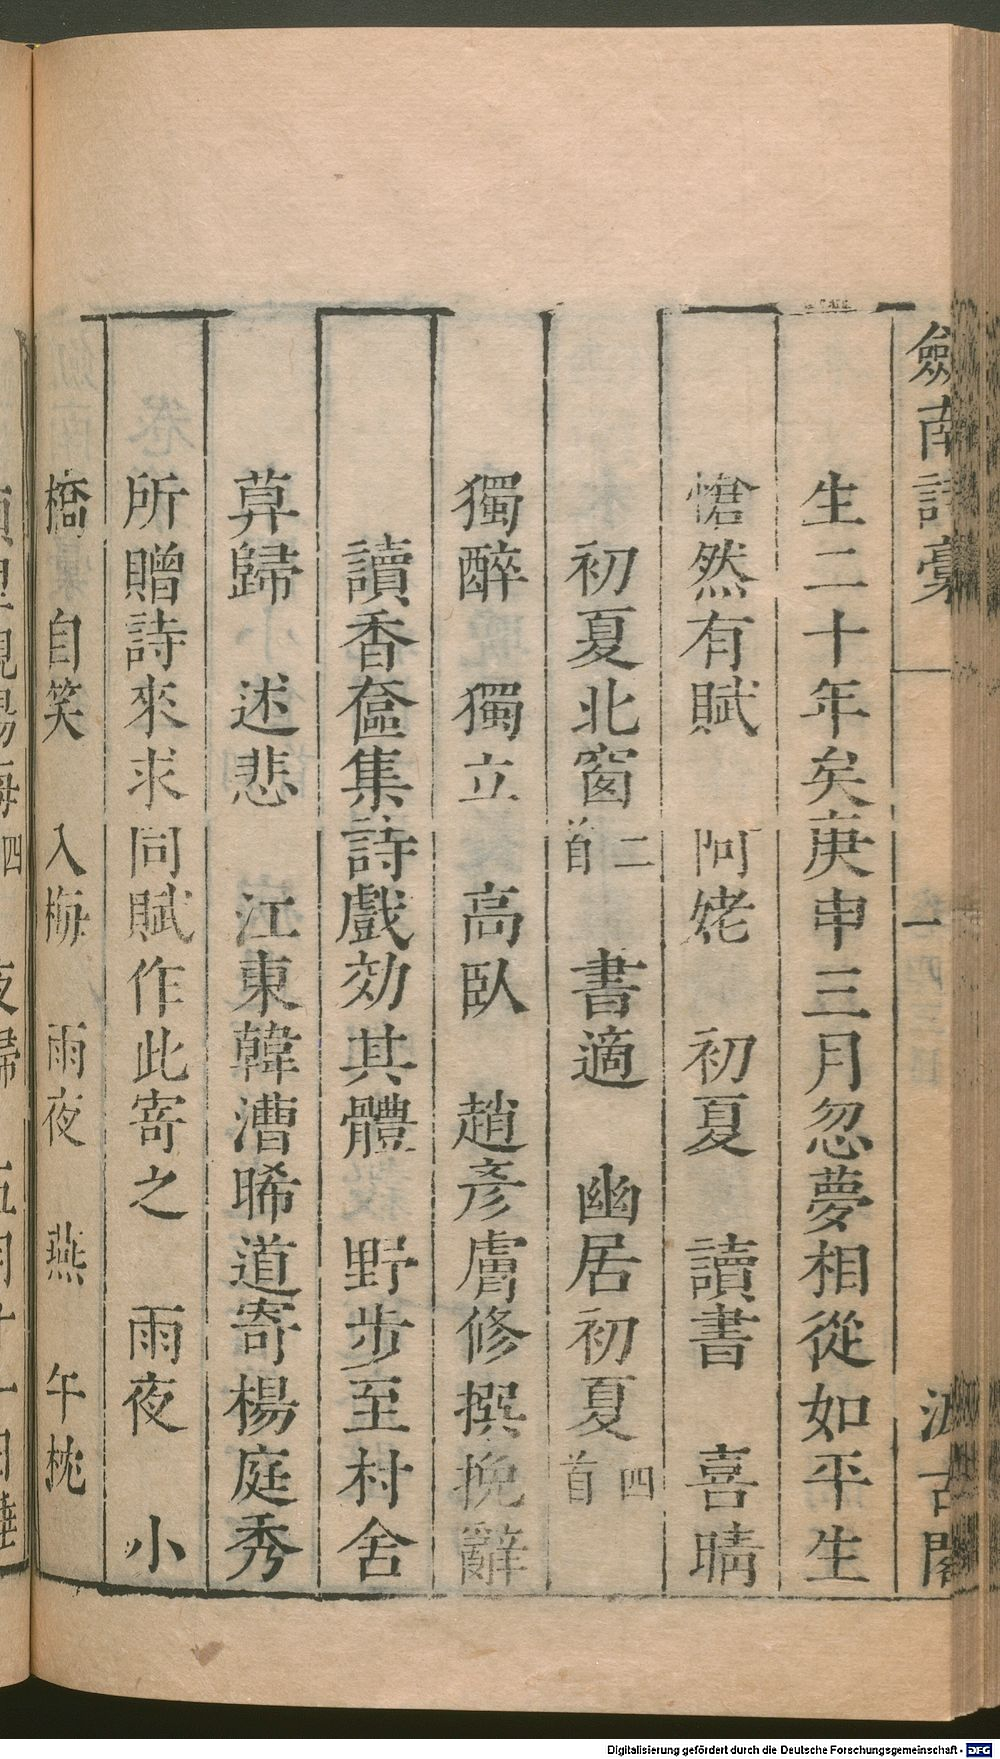 劍南詩稾 一 汲古閣
生二十年矣庚申三月忽夢相從如平生
愴然有賦 阿姥 初夏 讀書 喜晴
初夏北窗二首 書適 幽居初夏四首
獨醉 獨立 高臥 趙彥膚修撰挽辭
讀香奩集詩戲効其體 野步至村舍
莫歸 述悲 江東韓漕晞道寄楊庭秀
所贈詩來求同賦作此寄之 雨夜 小
橋 自笑 入梅 雨夜 燕 午枕
Digitalisierung gefördert durch die Deutsche Forschungsgemeinschaft - DFG